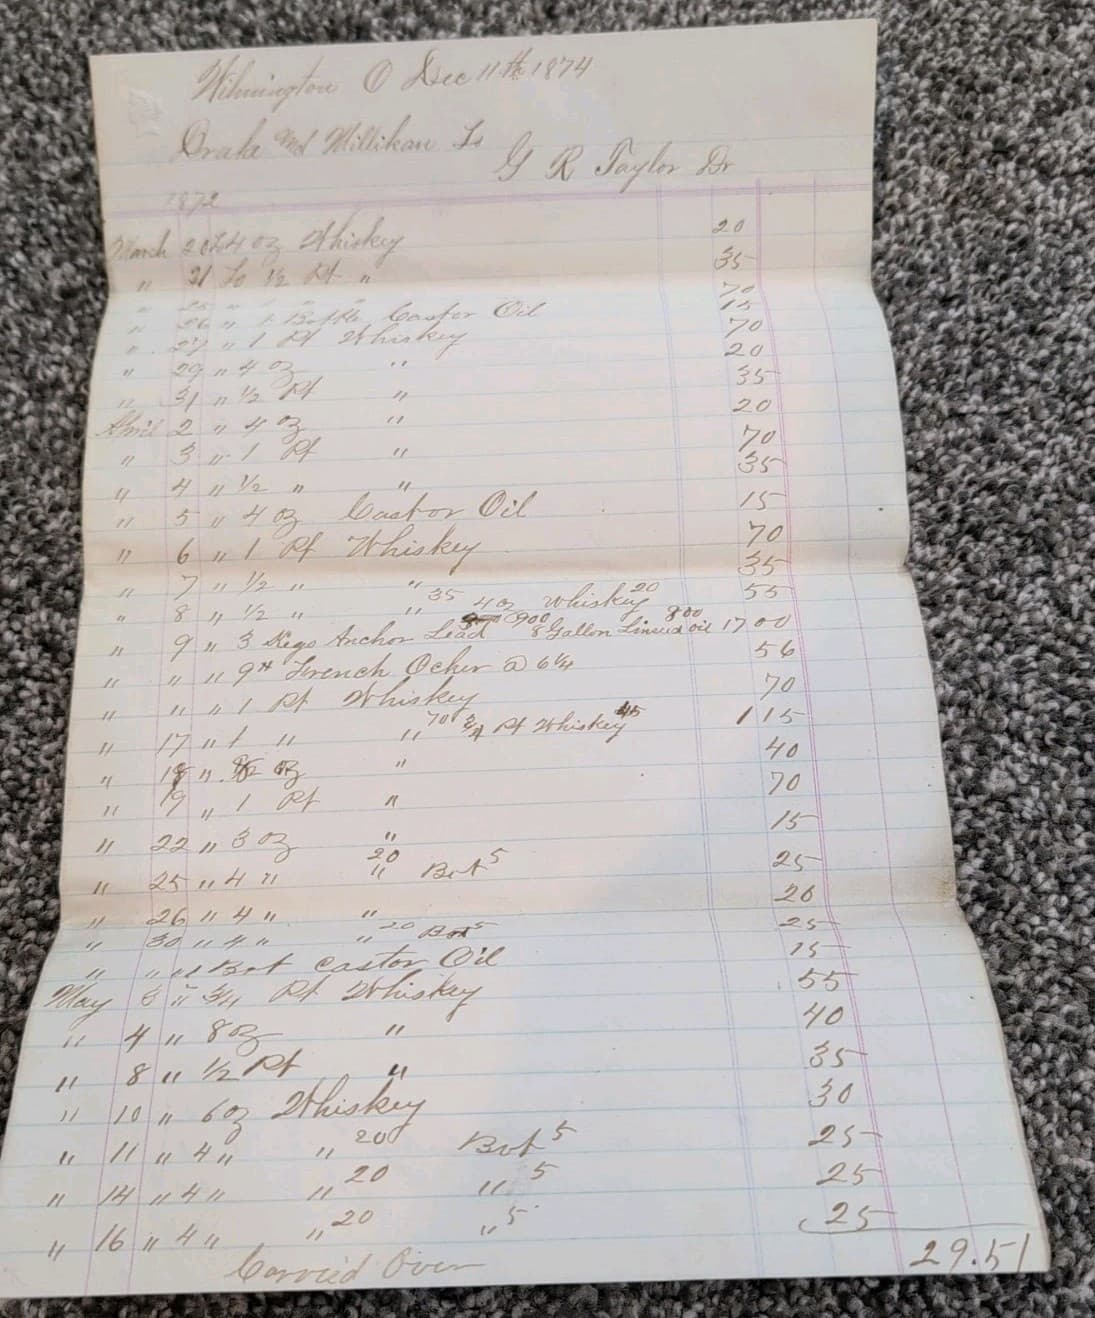 Wilmington O Dec 11th 1874
Drake and Millikan To
G R Taylor Dr
1872
March 20 To 4 oz Whiskey 20
" 21 To 1/2 Pt " 35
" 25 " " " " 70
" 26 " 1 Bottle Castor Oil 15
" 27 " 1 Pt Whiskey 70
" 29 " 4 oz " 20
" 31 " 1/2 Pt " 35
April 2 " 4 oz " 20
" 3 " 1 Pt " 70
" 4 " 1/2 " " 35
" 5 " 4 oz Castor Oil 15
" 6 " 1 Pt Whiskey 70
" 7 " 1/2 " " 35
" 8 " 1/2 " " 35 4 oz Whiskey 20 55
" 9 " 3 Kegs Anchor Lead 900 8 Gallon Linseed oil 800 17 00
" " " 9# French Ocher @ 6 1/4 56
" " " 1 Pt Whiskey 70
" 17 " 1 " " 70 3/4 Pt Whiskey 45 1 15
" 18 " oz " 40
" 19 " 1 Pt " 70
" 22 " 3 oz " 15
" 25 " 4 " " 20 Bot 5 25
" 26 " 4 " " 20
" 30 " 4 " " 20 Bot 5 25
" " " 1 Bot Castor Oil 15
May 3 " 3/4 Pt Whiskey 55
" 4 " 8 oz " 40
" 8 " 1/2 Pt " 35
" 10 " 6 oz Whiskey 30
" 11 " 4 " " 20 Bot 5 25
" 14 " 4 " " 20 " 5 25
" 16 " 4 " " 20 " 5 25
Carried Over 29.51